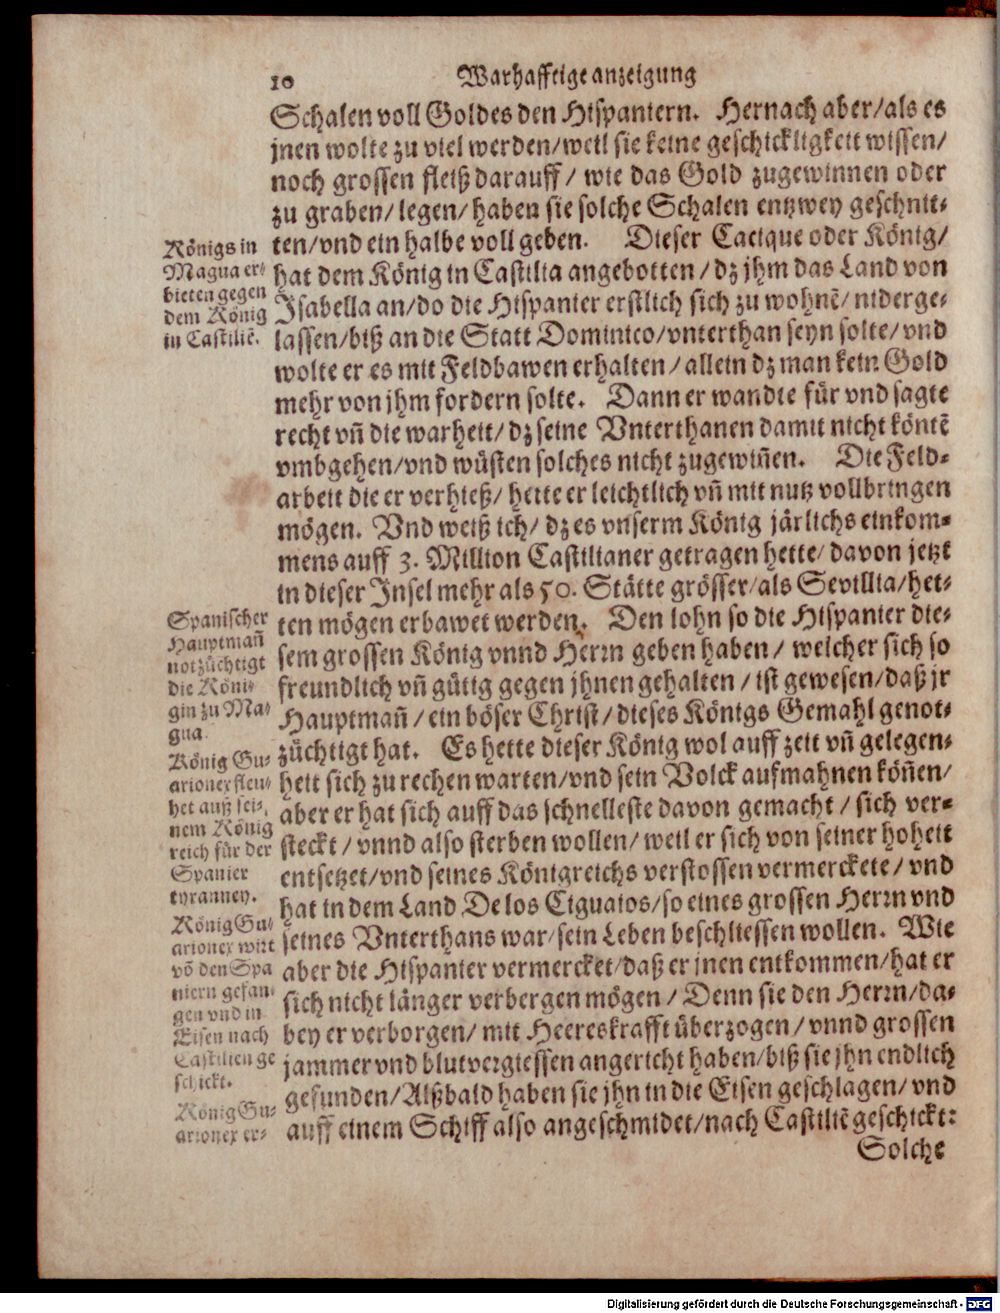 10 Warhafftige anzeigung
Schalen voll Goldes den Hispaniern. Hernach aber/als es
jnen wolte zu viel werden/weil sie keine geschickligkeit wissen/
noch grossen fleiß darauff / wie das Gold zugewinnen oder
zu graben/legen/haben sie solche Schalen entzwey geschnit-
ten/vnd ein halbe voll geben. Dieser Cacique oder König/
hat dem König in Castilia angebotten / dz jhm das Land von
Isabella an/do die Hispanier erstlich sich zu wohnẽ/ niderge-
lassen/biß an die Statt Dominico/vnterthan seyn solte/vnd
wolte er es mit Feldbawen erhalten / allein dz man kein Gold
mehr von jhm fordern solte. Dann er wandte für vnd sagte
recht vñ die warheit/ dz seine Vnterthanen damit nicht köntẽ
vmbgehen/vnd wüsten solches nicht zugewiñen. Die Feld-
arbeit die er verhieß/ hette er leichtlich vñ mit nutz vollbringen
mögen. Vnd weiß ich/ dz es vnserm König järlichs einkom-
mens auff 3. Million Castilianer getragen hette/ davon jetzt
in dieser Insel mehr als 50. Stätte grösser/als Sevillia/het-
ten mögen erbawet werden. Den lohn so die Hispanier die-
sem grossen König vnnd Herrn geben haben / welcher sich so
freundlich vñ gütig gegen jhnen gehalten / ist gewesen/daß jr
Hauptmañ / ein böser Christ/ dieses Königs Gemahl genot-
züchtigt hat. Es hette dieser König wol auff zeit vñ gelegen-
heit sich zu rechen warten/vnd sein Volck aufmahnen köñen/
aber er hat sich auff das schnelleste davon gemacht / sich ver-
steckt / vnnd also sterben wollen/ weil er sich von seiner hoheit
entsetzet/vnd seines Königreichs verstossen vermerckete/ vnd
hat in dem Land De los Ciguaios/so eines grossen Herrn vnd
seines Vnterthans war/sein Leben beschliessen wollen. Wie
aber die Hispanier vermercket/daß er jnen entkommen/hat er
sich nicht länger verbergen mögen / Denn sie den Herrn/da-
bey er verborgen/ mit Heereskrafft überzogen / vnnd grossen
jammer vnd blutvergiessen angericht haben/biß sie jhn endlich
gefunden/Alßbald haben sie jhn in die Eisen geschlagen/ vnd
auff einem Schiff also angeschmidet/nach Castiliẽ geschickt:
Solche
Königs in
Magua er-
bieten gegen
dem König
in Castiliẽ.
Spanischer
Hauptmañ
notzüchtigt
die Köni-
gin zu Ma-
gua.
König Gu-
arionex fleu-
het auß sei-
nem König
reich für der
Spanier
tyranney.
König Gu-
arionex wirt
võ den Spa
niern gefan-
gen vnd in
Eisen nach
Castilien ge
schickt.
König Gu-
arionex er-
Digitalisierung gefördert durch die Deutsche Forschungsgemeinschaft - DFG